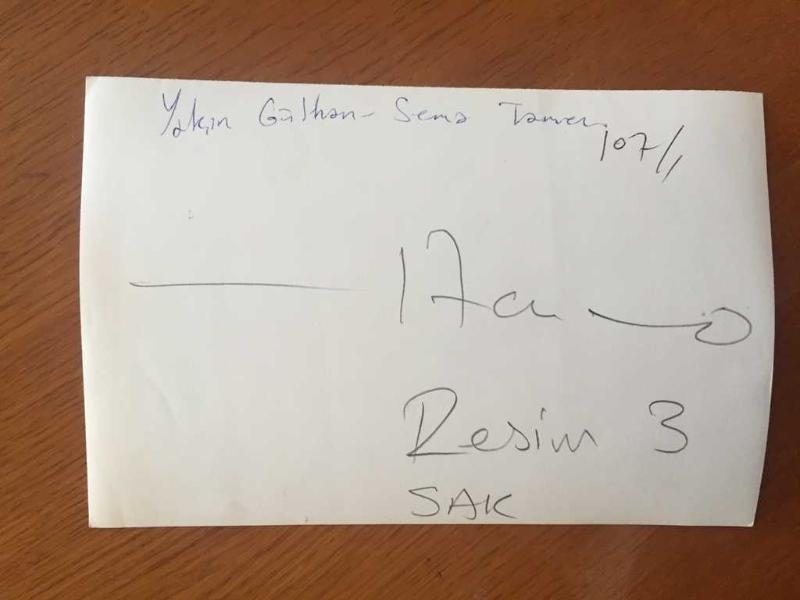 Yalçın Gülhan - Sema Taner
107/1
17 cm
Resim 3
SAK